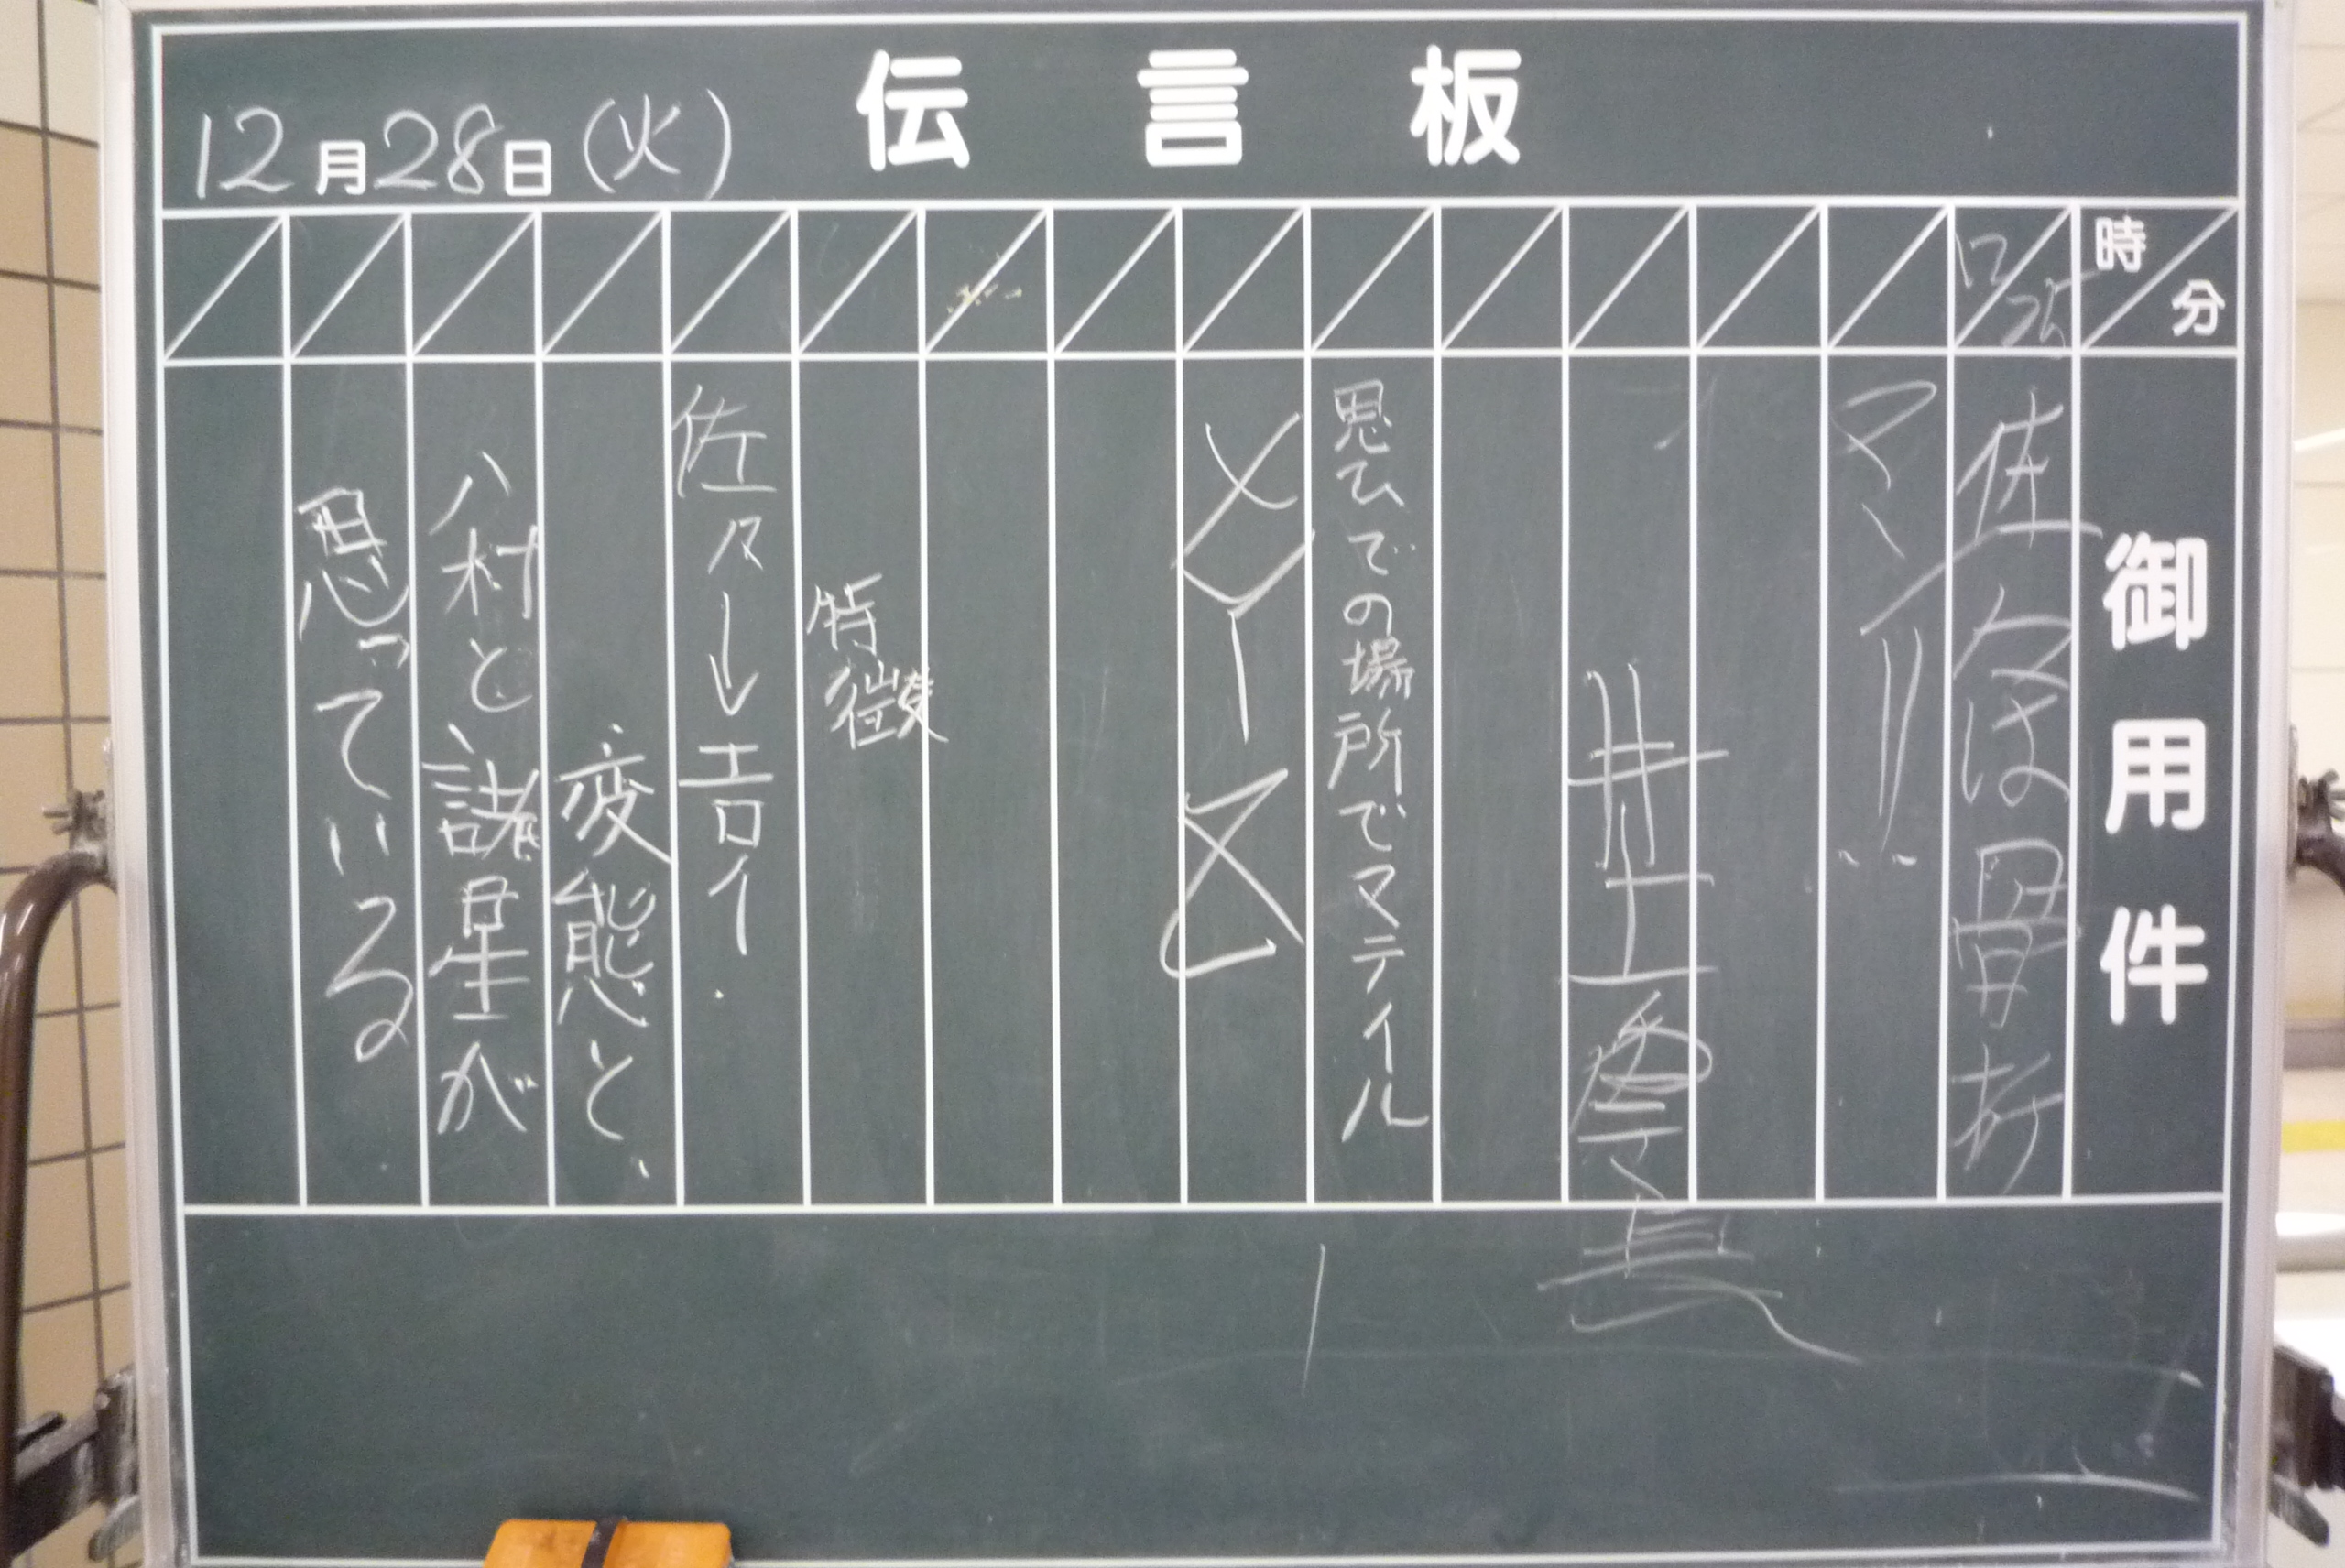 伝言板
12月28日（火）
時分
御用件
17 25
佐々は骨折
マソ!!
井上
思ひでの場所でマテイル
メリーXマス
特徴
佐々しエロイ.
変態と、
八村と諸星が
思っている